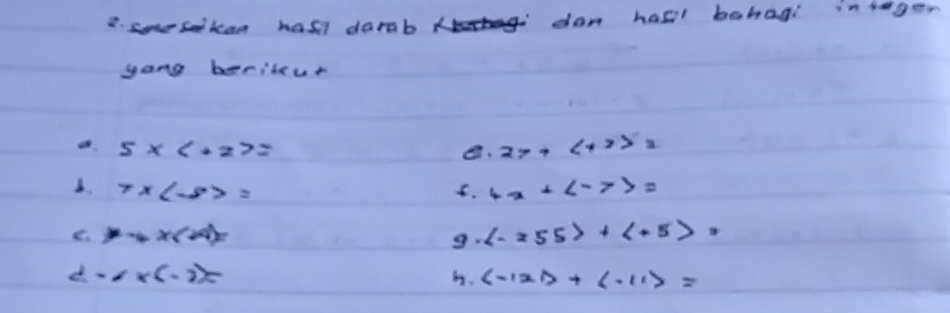 2. selesaikan hasil darab dan hasil bahagi integer
yang berikut
a. 5 × (+2) =
b. 7 × (-8) =
c.
d.
e. 27 + (+3) =
f. 42 + (-7) =
g. (-255) + (+5) =
h. (-121) + (-11) =